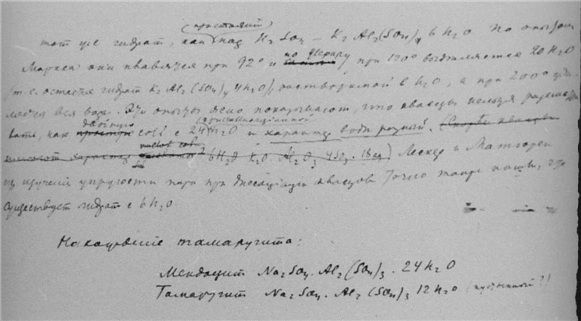 (простоит,)
тот же гидрат, как над H₂SO₄ – K₂Al₂(SO₄)₄ 6H₂O По опытам
они плавятся при 92° и по Жерару при 120° выделяется 20H₂O
(т. е. остается гидрат K₂Al₂(SO₄)₄ 4H₂O) растворимой в H₂O, а при 200°
вся вода. Эти опыты ясно показывают, что квасцы нельзя
как двойную соль с 24H₂O и водой
6H₂O K₂O Al₂O₃ 4SO₃ 18 Лескер и
из изучения упругости пара при диссоциации квасцов точно также нашли, что
существует гидрат с 6H₂O.
Нахождение тамаругита:
Мендоцит Na₂SO₄. Al₂(SO₄)₃. 24H₂O
Тамаругит Na₂SO₄. Al₂(SO₄)₃ 12H₂O